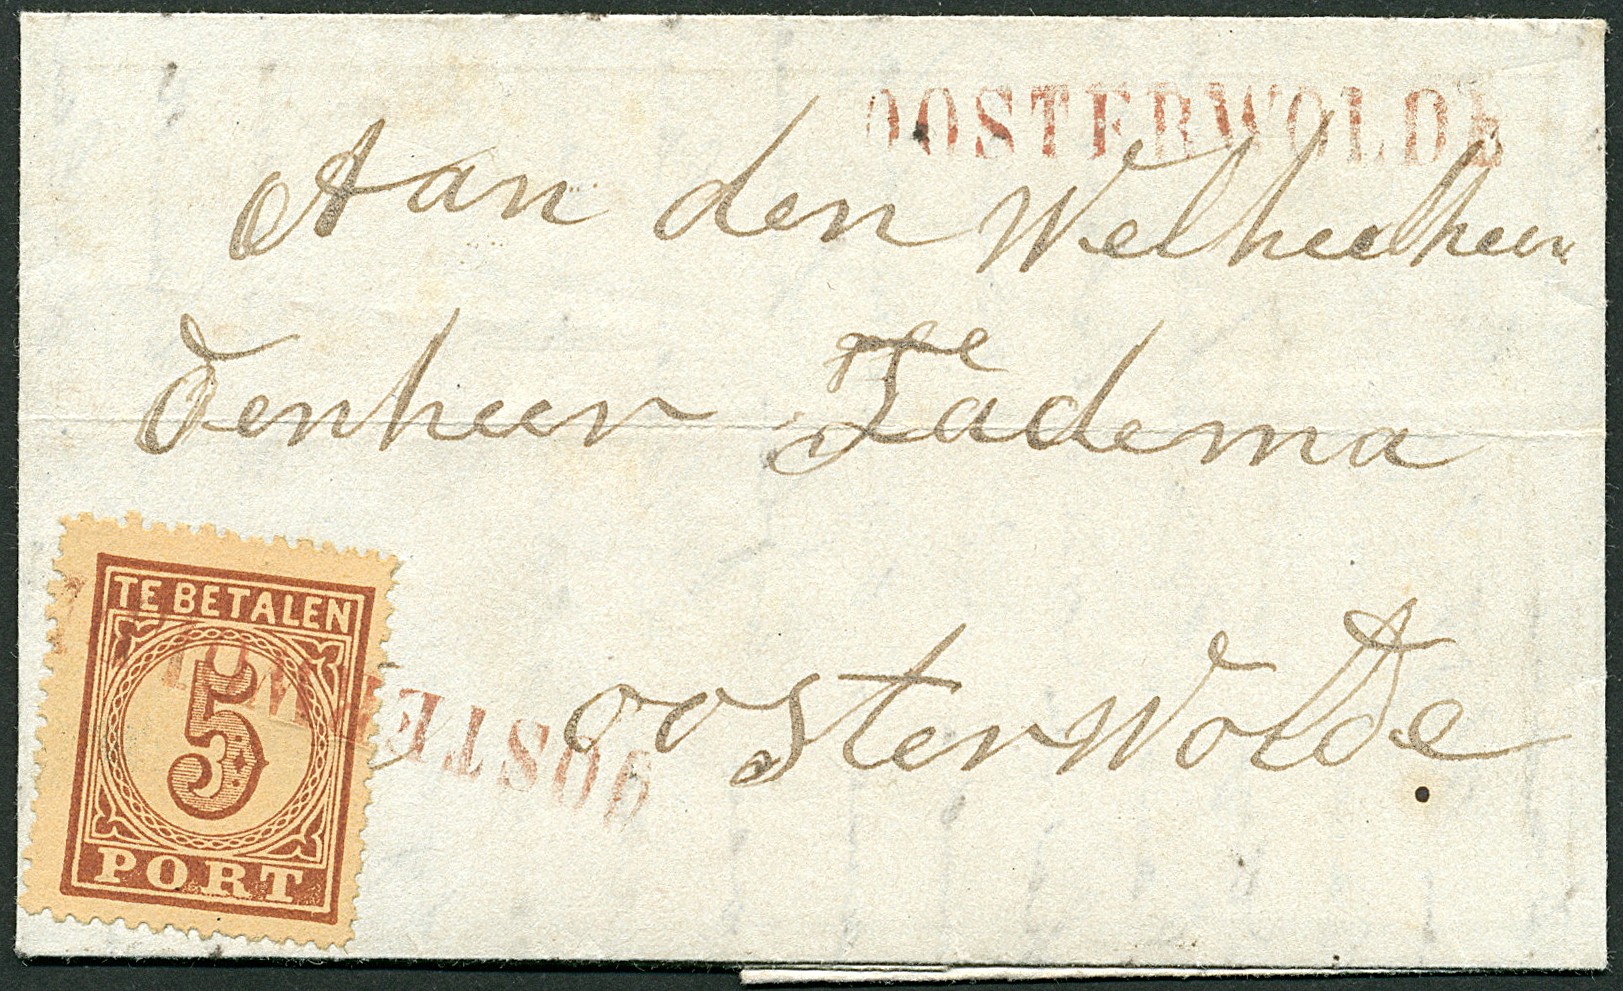 OOSTERWOLDE
Aan den Welheerheer
denheer Tadema
oosterwolde
TE BETALEN
5
PORT
OOSTERWOL